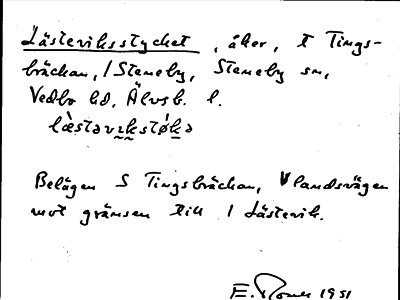 Lästeriksstycket, åker, t Tings-
bräckan, / Steneby, Steneby sn,
Vedbo hd, Älvsb. l.
læ̀stəvɪkstø̀kə
Belägen S Tingsbräckan, V landsvägen
mot gränsen till / Lästerik.
E. 1951